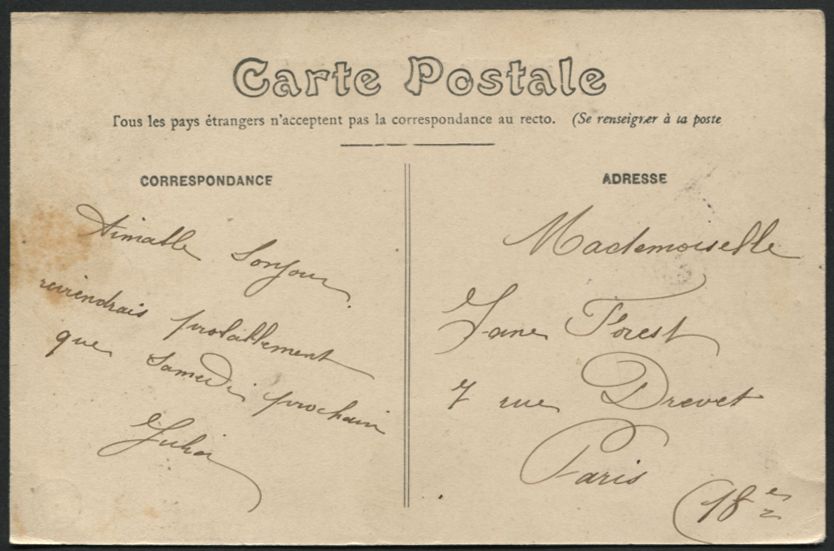 Carte Postale
Tous les pays étrangers n'acceptent pas la correspondance au recto. (Se renseigner à la poste
CORRESPONDANCE
Aimable bonjour
reviendrais probablement
que samedi prochain
Julia
ADRESSE
Mademoiselle
Jane Forest
7 rue Drevet
Paris
(18e